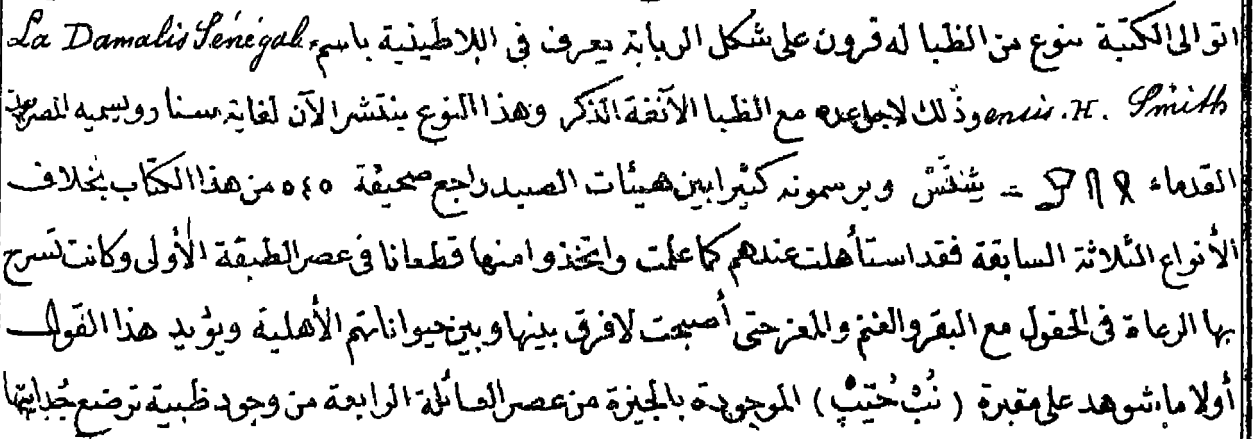 اتوا الى الكتبة بنوع من الظبا له قرون على شكل الربابة يعرف فى اللاطينية باسم La Damalis Sénégal
ensis. H. Smith وذلك لاجل عده مع الظبا الآنفة الذكر وهذا النوع ينتشر الآن لغاية سنار ويسميه المصريون
القدماء = شنتس ويرسمونه كثيرا بين هيئات الصيد راجع صحيفة ٥٤٥ من هذا الكتاب بخلاف
الأنواع الثلاثة السابقة فقد استأهلت عندهم كما علمت واتخذوا منها قطعانا فى عصر الطبقة الأولى وكانت تسرح
بها الرعاة فى الحقول مع البقر والغنم والمعز حتى أصبحت لا فرق بينها وبين حيواناتهم الأهلية ويؤيد هذا القول
أولا ما شوهد على مقبرة ( نُبْ حُتِپْ ) الموجودة بالجيزة من عصر العائلة الرابعة من وجود ظبية ترضع جُدايتها